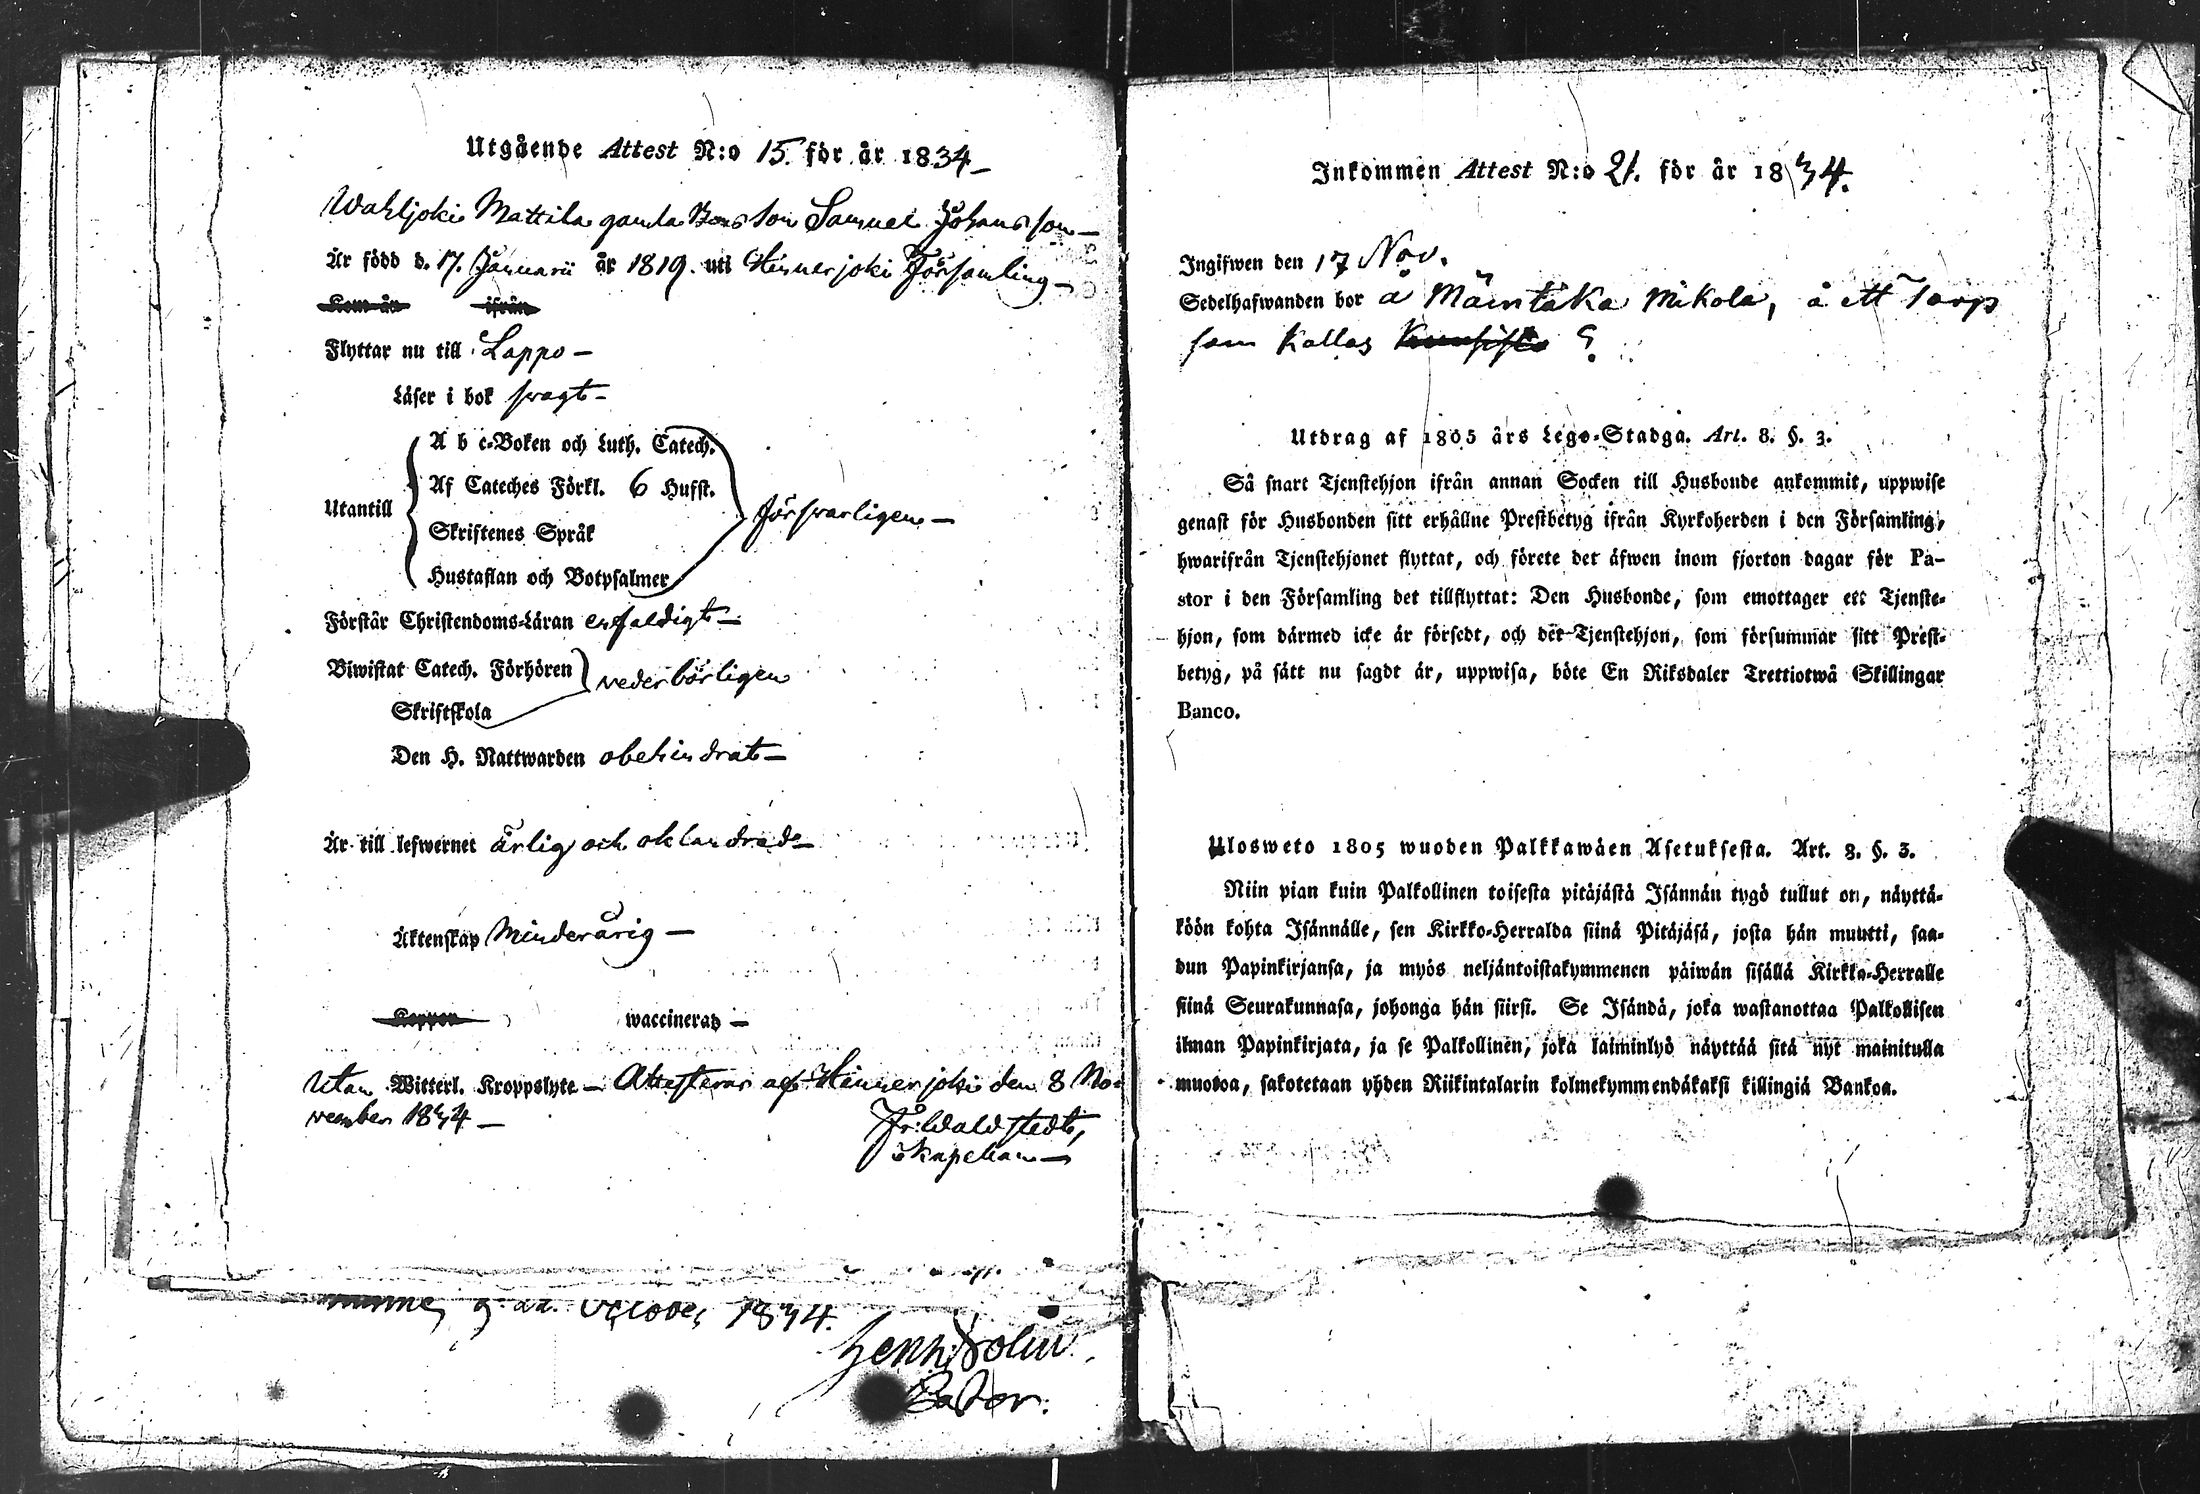 Utgående Attest N:o 15. för år 1834
Wahljoki Mattila gamla Bons Son Samuel Johansson
Är född d. 17. Januarii år 1819. uti Hinnerjoki Församling
Kom år ifrån
Flyttar nu till Lappo
Läser i bok svagt
A b c-Boken och Luth. Catech.
Af Cateches Förkl. 6 Hufst.
Utantill försvarligen
Skriftenes Språk
Hustaflan och Botpsalmer
Förstår Christendoms-Läran enfaldigt
Biwistat Catech. Förhören vederbörligen
Skriftskola
Den H. Nattwarden obehindrat
Är till lefwernet ärlig och oklandrad
Äktenskap Minderårig
Koppor waccinerad
Utan Witterl. Kroppslyte Attesterar af Hinnerjoki den 8 No-
vember 1834
Fr: Waldstedt,
Kapellan
9 October 1834.
Pastor.
Inkommen Attest N:o 21. för år 1834.
Ingifwen den 17 Nov.
Sedelhafwanden bor å Mäntäka Mikola, å ett Torp
som kallas ?
Utdrag af 1805 års Lego-Stadga. Art. 8. §. 3.
Så snart Tjenstehjon ifrån annan Socken till Husbonde ankommit, uppwise
genast för Husbonden sitt erhållne Prestbetyg ifrån Kyrkoherden i den Församling,
hwarifrån Tjenstehjonet flyttat, och förete det äfwen inom fjorton dagar för Pa-
stor i den Församling det tillflyttat: Den Husbonde, som emottager ett Tjenste-
hjon, som därmed icke är försedt, och det Tjenstehjon, som försummar sitt Prest-
betyg, på sätt nu sagdt är, uppwisa, böte En Riksdaler Trettiotwå Skillingar
Banco.
Ulosweto 1805 wuoden Palkkawäen Asetuksesta. Art. 8. §. 3.
Niin pian kuin Palkollinen toisesta pitäjästä Isännän tygö tullut on, näyttä-
köön kohta Isännälle, sen Kirkko-Herralda siinä Pitäjäsä, josta hän muutti, saa-
dun Papinkirjansa, ja myös neljäntoistakymmenen päiwän sisällä Kirkko-Herralle
siinä Seurakunnasa, johonga hän siirsi. Se Isändä, joka wastanottaa Palkollisen
ilman Papinkirjata, ja se Palkollinen, joka laiminlyö näyttää sitä nyt mainitulla
muotoa, sakotetaan yhden Riikintalarin kolmekymmendäkaksi killingiä Bankoa.